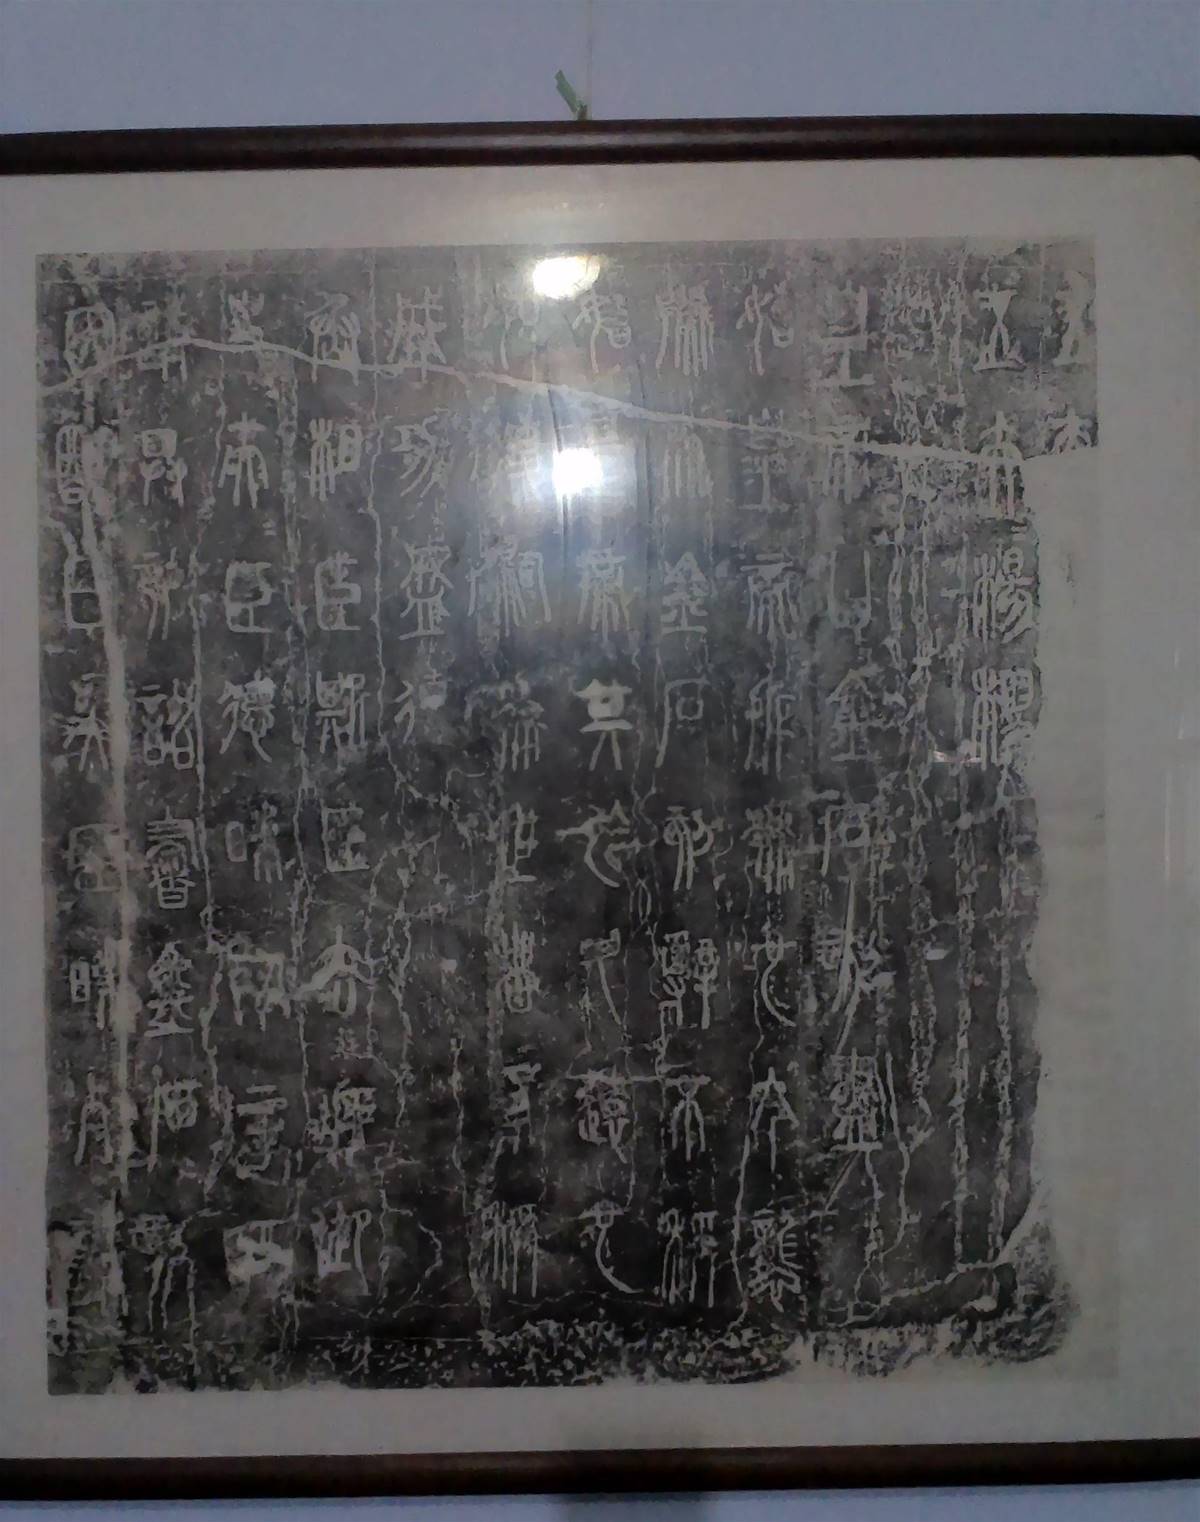 五大夫
五大夫楊樛
皇帝曰金石刻盡
始皇帝所為也今襲
號而金石刻辭不稱
始皇帝其於久遠也
如後嗣為之者不稱
成功盛德
丞相臣斯臣去疾御
史大夫臣德昧死言臣
請具刻詔書金石刻
因明白矣臣昧死請